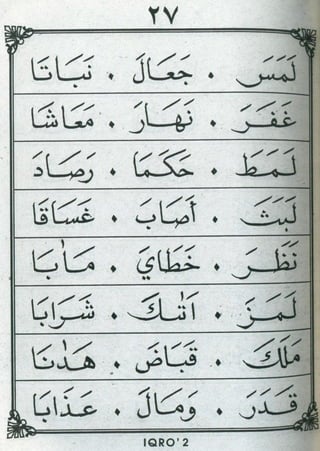 ٢٧
لَمَسَ . جَعَالَ . نَبَاتَا
غَفَرَ . نَهَارَ . مَعَاشَا
لَمَطَ . حَكَمَا . رَصَادَ
لَبَثَ . أَصَابَ . غَسَاقَا
نَظَرَ . خَطَايَ . مَاٰبَا
لَمَزَ . اَتٰىكَ . شَرَابَا
مَلَكَ . قَبَاضَ . هَدٰىنَا
قَدَرَ . وَمَالَ . عَذَابَا
IQRO'2